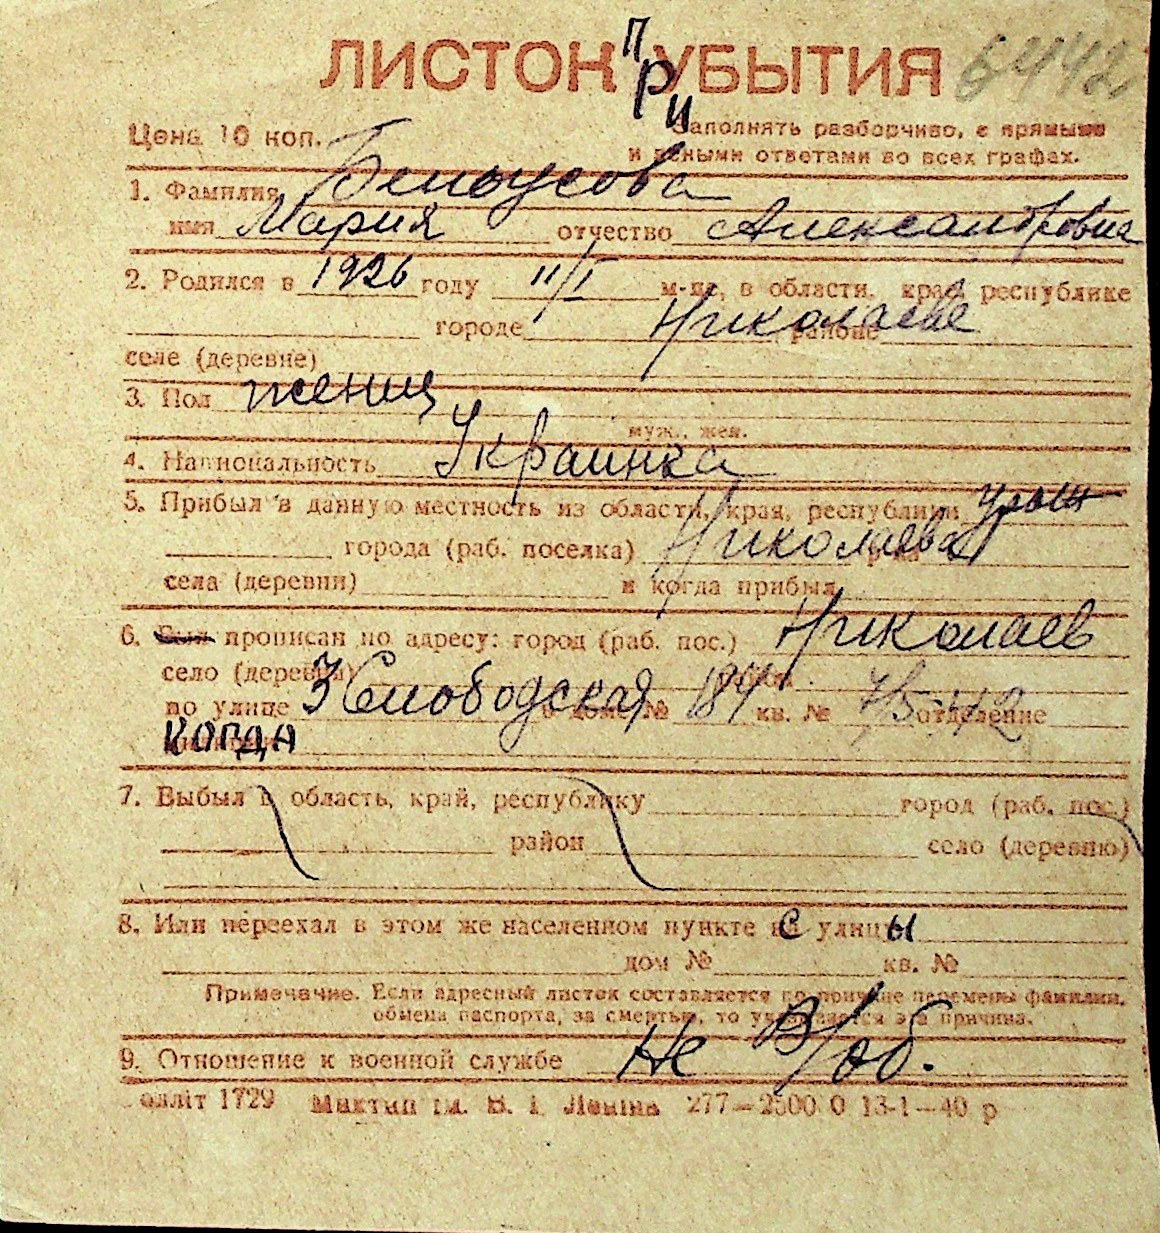 ЛИСТОК ПРИ УБЫТИЯ 6442
Цена 10 коп.
Заполнять разборчиво, с прямыми
и ясными ответами во всех графах.
1. Фамилия Белоусова
имя Мария отчество Александровна
2. Родился в 1926 году 11/I м-це, в области, крае, республике
городе Николаеве районе
селе (деревне)
3. Пол женщ
муж., жен.
4. Национальность Украинка
5. Прибыл в данную местность из области, края, республики
города (раб. поселка) Николаева р-на
села (деревни) и когда прибыл
6. Был прописан по адресу: город (раб. пос.) Николаев
село (деревня) район
по улице 3 Слободская в доме № 184 кв. № 7/5-42 отделение
КОГДА
7. Выбыл в область, край, республику город (раб. пос.)
район село (деревню)
8. Или переехал в этом же населенном пункте с улицы
дом № кв. №
Примечание. Если адресный листок составляется по причине перемены фамилии,
обмена паспорта, за смертью, то указывается эта причина.
9. Отношение к военной службе Не в/об.
олліт 1729 Миктип ім. В. І. Леніна 277—2500 0 13-1—40 р